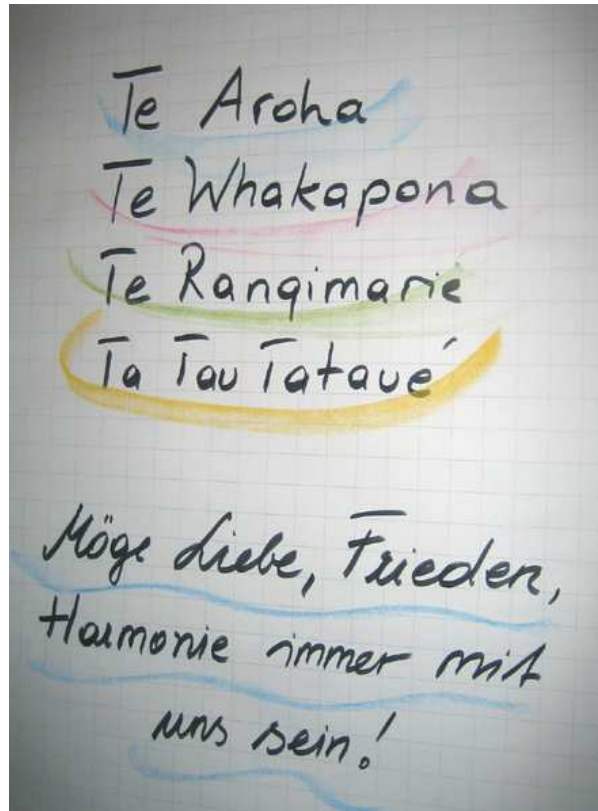 Te Aroha
Te Whakapona
Te Rangimarie
Ta Tau Tataué
Möge Liebe, Frieden,
Harmonie immer mit
uns sein!